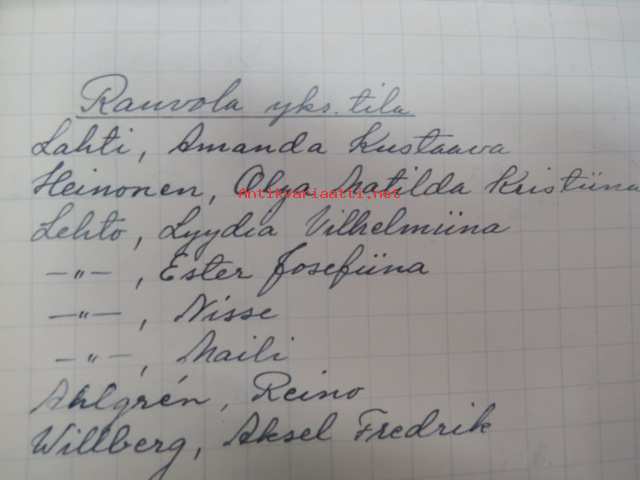 Rauvola yks. tila
Lahti, Amanda Kustaava
Heinonen, Olga Matilda Kristiina
Antikvariaatti.net
Lehto, Lyydia Vilhelmiina
—"—, Ester Josefiina
—"—, Nisse
—"—, Maili
Ahlgrén, Reino
Willberg, Aksel Fredrik